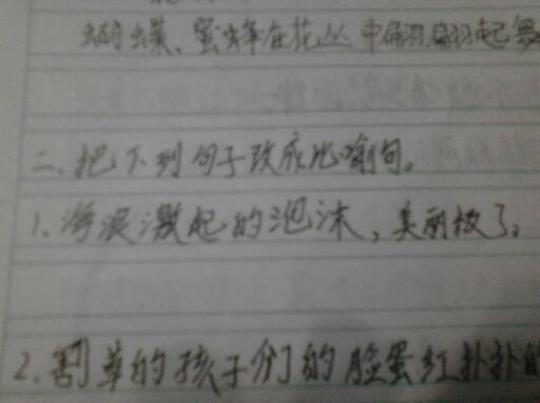 蝴蝶、蜜蜂在花丛中翩翩起舞
二、把下列句子改成比喻句。
1、海浪激起的泡沫，美丽极了。
2.割草的孩子们的脸蛋红扑扑的